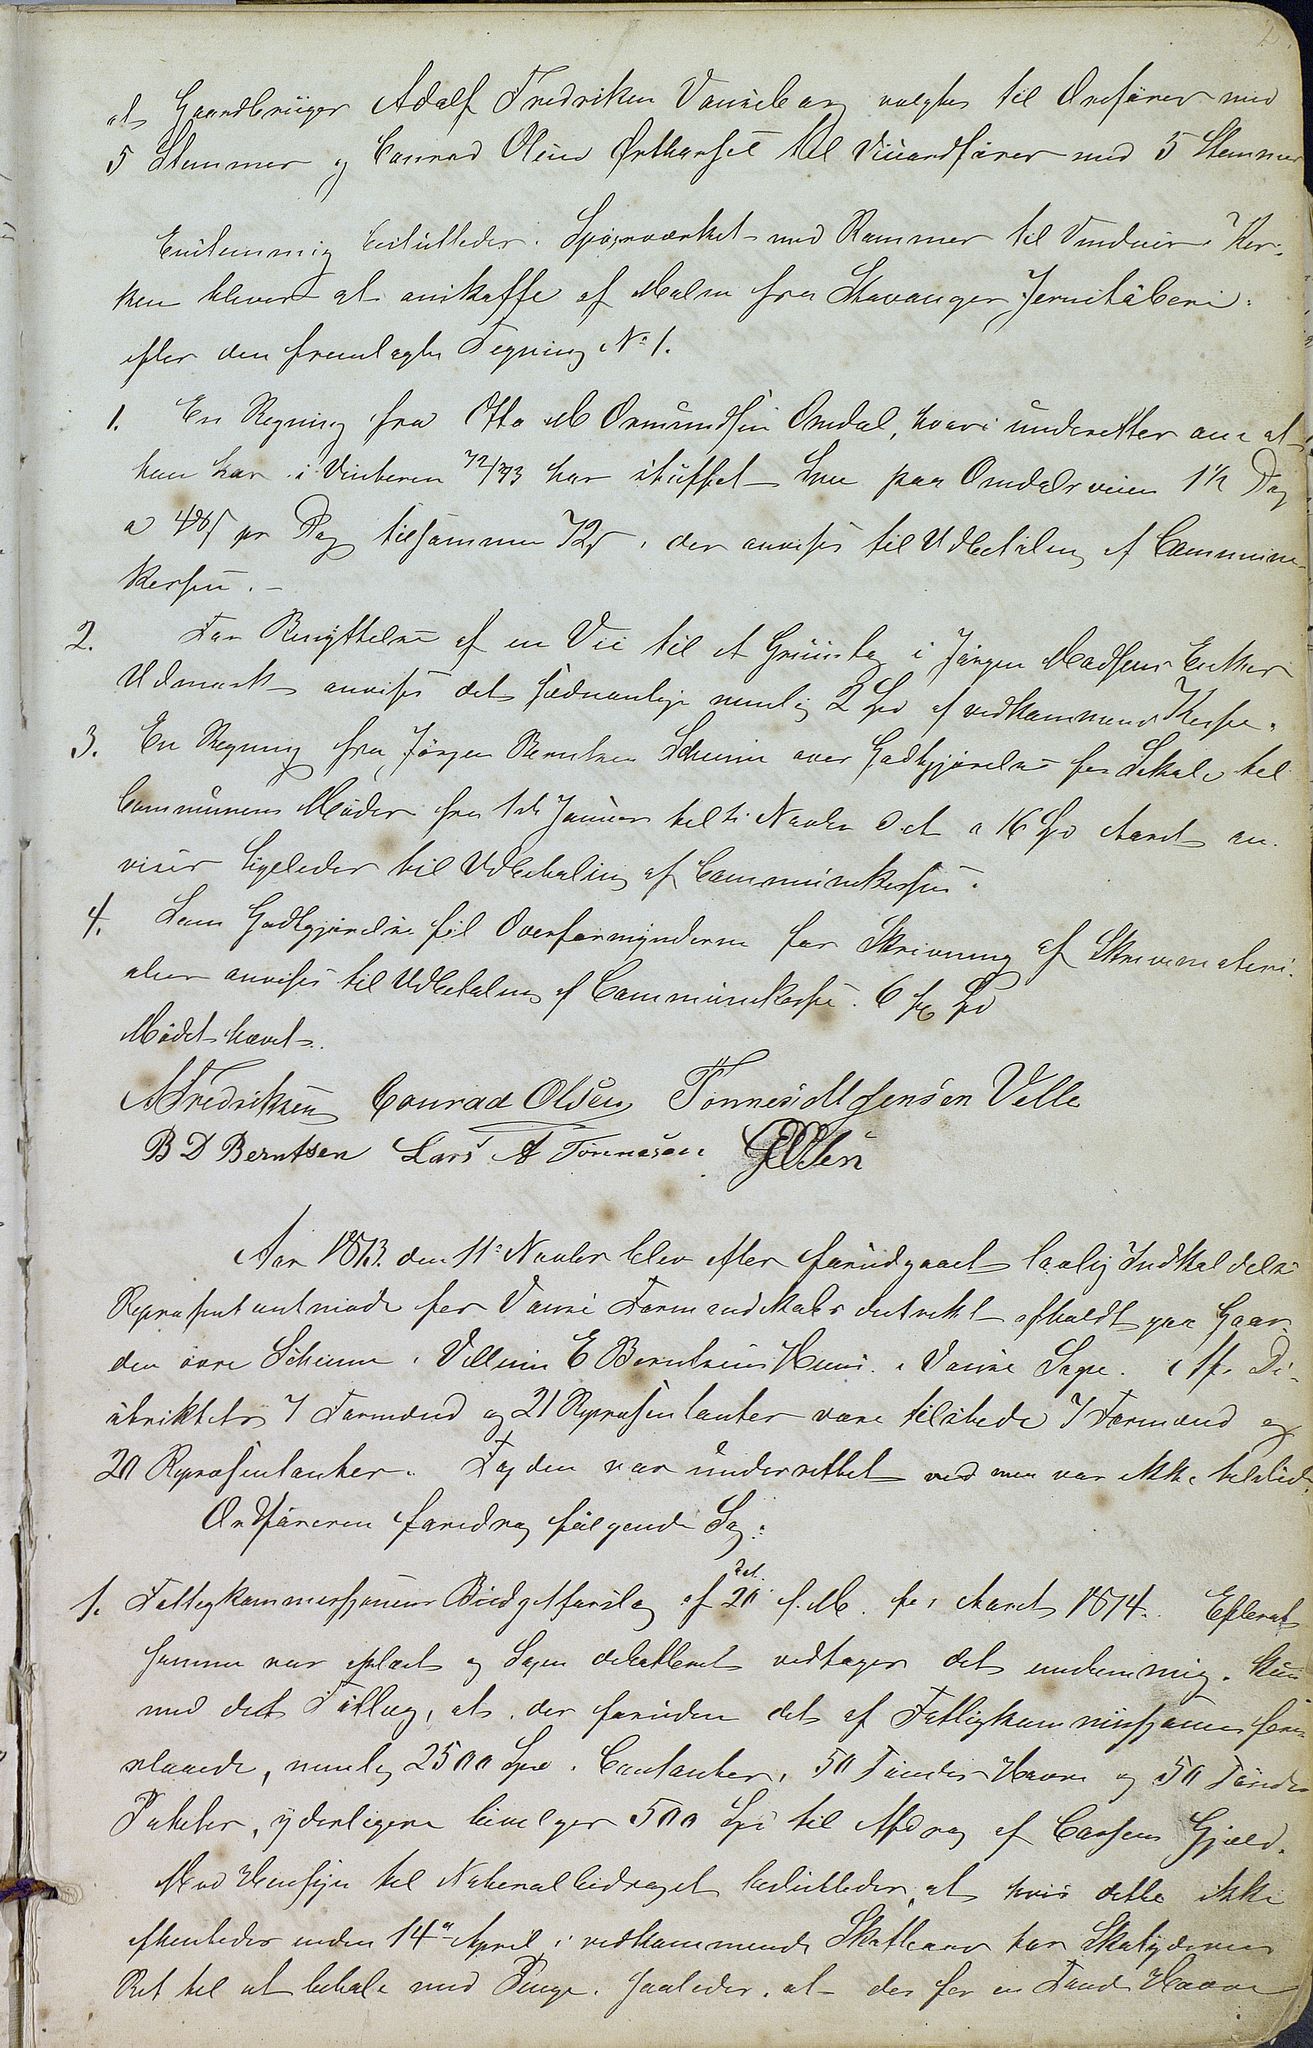 at Gaardbruger Adolf Fredriksen Vanseborg valgtes til Ordfører med
5 Stemmer og Conrad Olsen Ørthansel til Viceordfører med 5 Stemmer
Enstemmig besluttedes: Spro­gværket med Rammer til Vinduer i Kir-
ken bliver at anskaffe af Malm fra Stavanger Jernstøberi
efter den fremlagte Tegning No 1.
1. En Regning fra Otto M Osmundsen Omdal, hvori underetter om at
han har i Vinteren 72/73 har skuffet Sne paa Omdalsveien 1½ Dag
a 48 s pr Dag tilsammen 72 s, der anvises til Udbetaling af Commune-
kassen.
2. For Benyttelse af en Vei til et Gruustag i Jørgen Madsens Enkes
Udmark anvises det sædvanlige nemlig 2 Spd af vedkommende Kasse.
3. En Regning fra Jørgen Berntsen Scheime over Godtgjørelse for Lokale til
Communens Møder fra 1ste Januar til Novbr d. A. a 16 Spd Aaret an-
vises ligeledes til Udbetaling af Communekassen.
4. Som Godtgjørelse til Overformynderne for Skrivning af Skrivemateri-
alier anvises til Udbetaling af Communekassen 6 Spd
Mødet hævet.
AFredriksen Conrad Olsen Tønnes M Jensen Velle
B D Berntsen Lars A Tønnesen GOlsen
Aar 1873 den 11te Novbr blev efter forudgaaet lovlig Indkaldelse
Repræsentantmøde for Vanse Formandskabsdistrikt afholdt paa Gaar-
den øvre Scheime i Villum E Berntsens Huus i Vanse Sogn. Af Di-
striktets 7 Formænd og 21 Repræsentanter vare tilstede 7 Formænd og
20 Repræsentanter. Fogden var underrettet men var ikke tilstede.
Ordføreren foredrog følgende Sag:
1. Fattigkommissionens Budgetforslag af 20 f. M. for Aaret 1874. Efterat
samme var oplæst og Sagen debatteret vedtages det enstemmig, kun
med det Tillæg, at der foruden det af Fattigkommissionen fore-
slaaede, nemlig 2500 Spd. Contanter, 50 Tønder Havre og 50 Tønder
Poteter, yderligere bevilges 500 Spd til Afdrag af Cassens Gjæld.
Med Hensyn til Naturalbidraget besluttedes, at hvis dette ikke
afhentedes inden 14de April i vedkommende Skatteaar har Skatyderen
Ret til at betale med Penge, saaledes, at der for en Tønde Havre